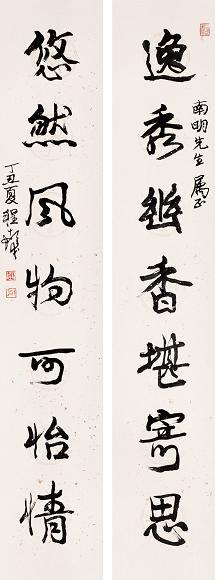 南明先生属正
逸秀幽香堪寄思
悠然風物可怡情
丁丑夏程